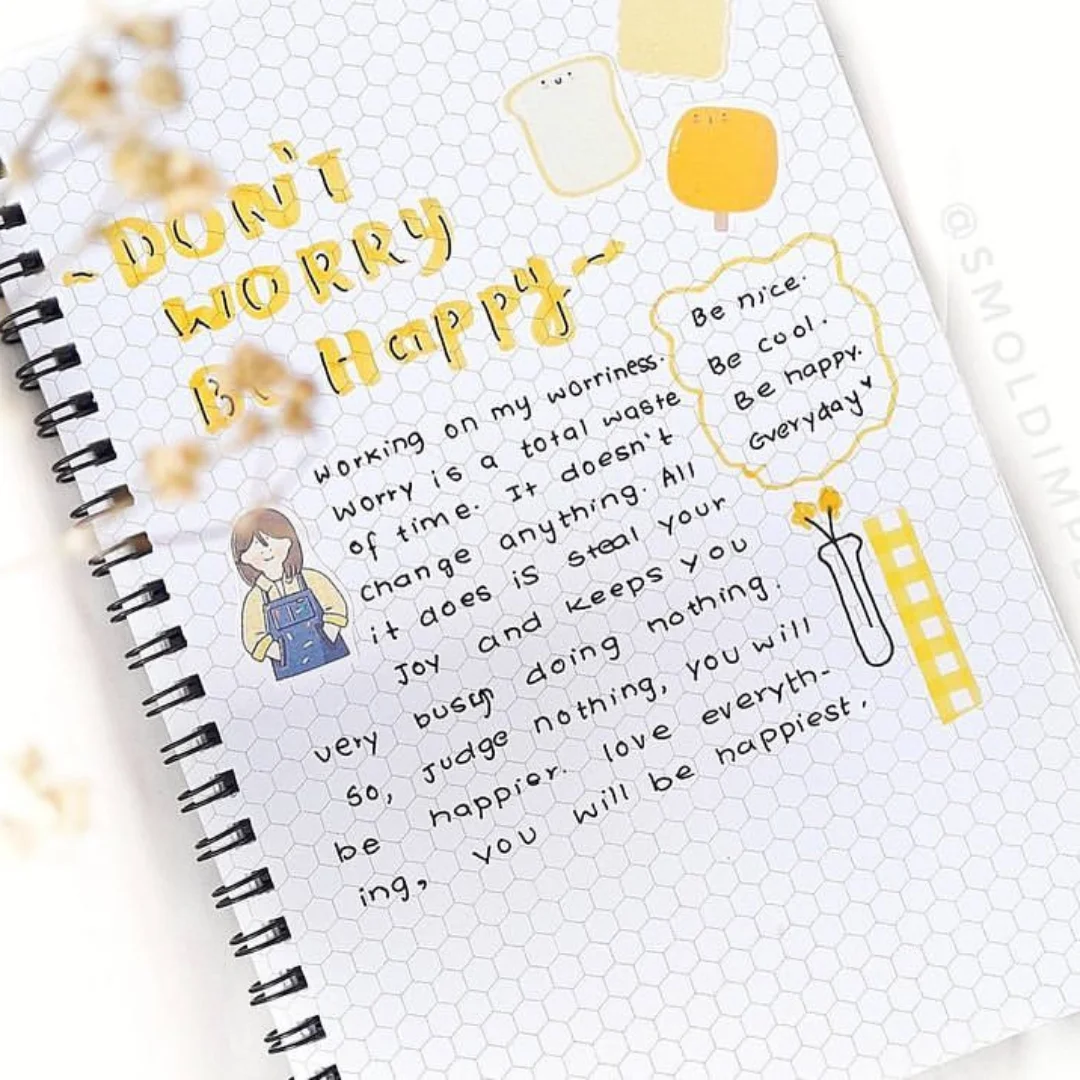 ~DON'T
WORRY
Be Happy~
Be nice.
Be cool.
Be happy.
Everyday
Working on my worriness.
Worry is a total waste
of time. It doesn't
change anything. All
it does is steal your
Joy and keeps you
very busy doing nothing.
So, Judge nothing, you will
be happier. love everyth-
ing, you will be happiest.
@SMOLDIMPS